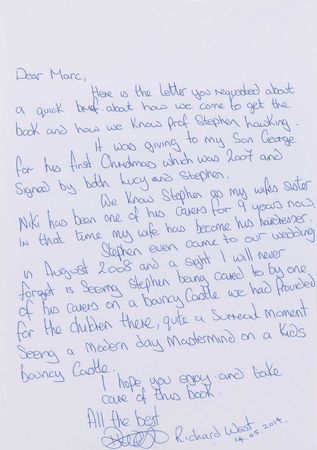 Dear Marc,
Here is the letter you requested about
a quick brief about how we come to get the
book and how we know Prof Stephen hawking.
It was giving to my Son George
for his first Christmas which was 2007 and
Signed by both Lucy and Stephen.
We know Stephen as my wifes sister
Niki has been one of his carers for 9 years now.
In that time my wife has become his hairdresser.
Stephen even came to our wedding
in August 2008 and a sight I will never
forget is Seeing Stephen being cared to by one
of his carers on a bouncy Castle we had Provided
for the children there, quite a Surreal moment
Seeing a modern day Mastermind on a Kids
bouncy Castle.
I hope you enjoy and take
care of this book.
All the best
Richard West
14.05.2014.